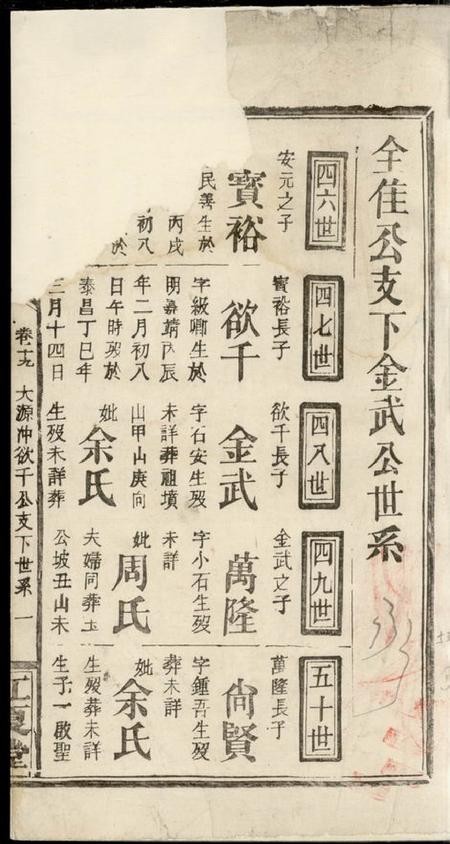 全住公支下金武公世系
四六世
安元之子
寳裕
民善生於
丙戌
初八
於
四七世
寳裕長子
欲千
字級卿生於
明嘉靖丙辰
年二月初八
日午時歿於
泰昌丁巳年
三月十四日
四八世
欲千長子
金武
字石安生歿
未詳葬祖墳
山甲山庚向
妣
余氏
生歿未詳葬
四九世
金武之子
萬隆
字小石生歿
未詳
妣
周氏
夫婦同葬玉
公坡丑山未
五十世
萬隆長子
尙賢
字鍾吾生歿
葬未詳
妣
余氏
生歿葬未詳
生子一啟聖
卷十九 大源沖欲千公支下世系 一
江夏堂